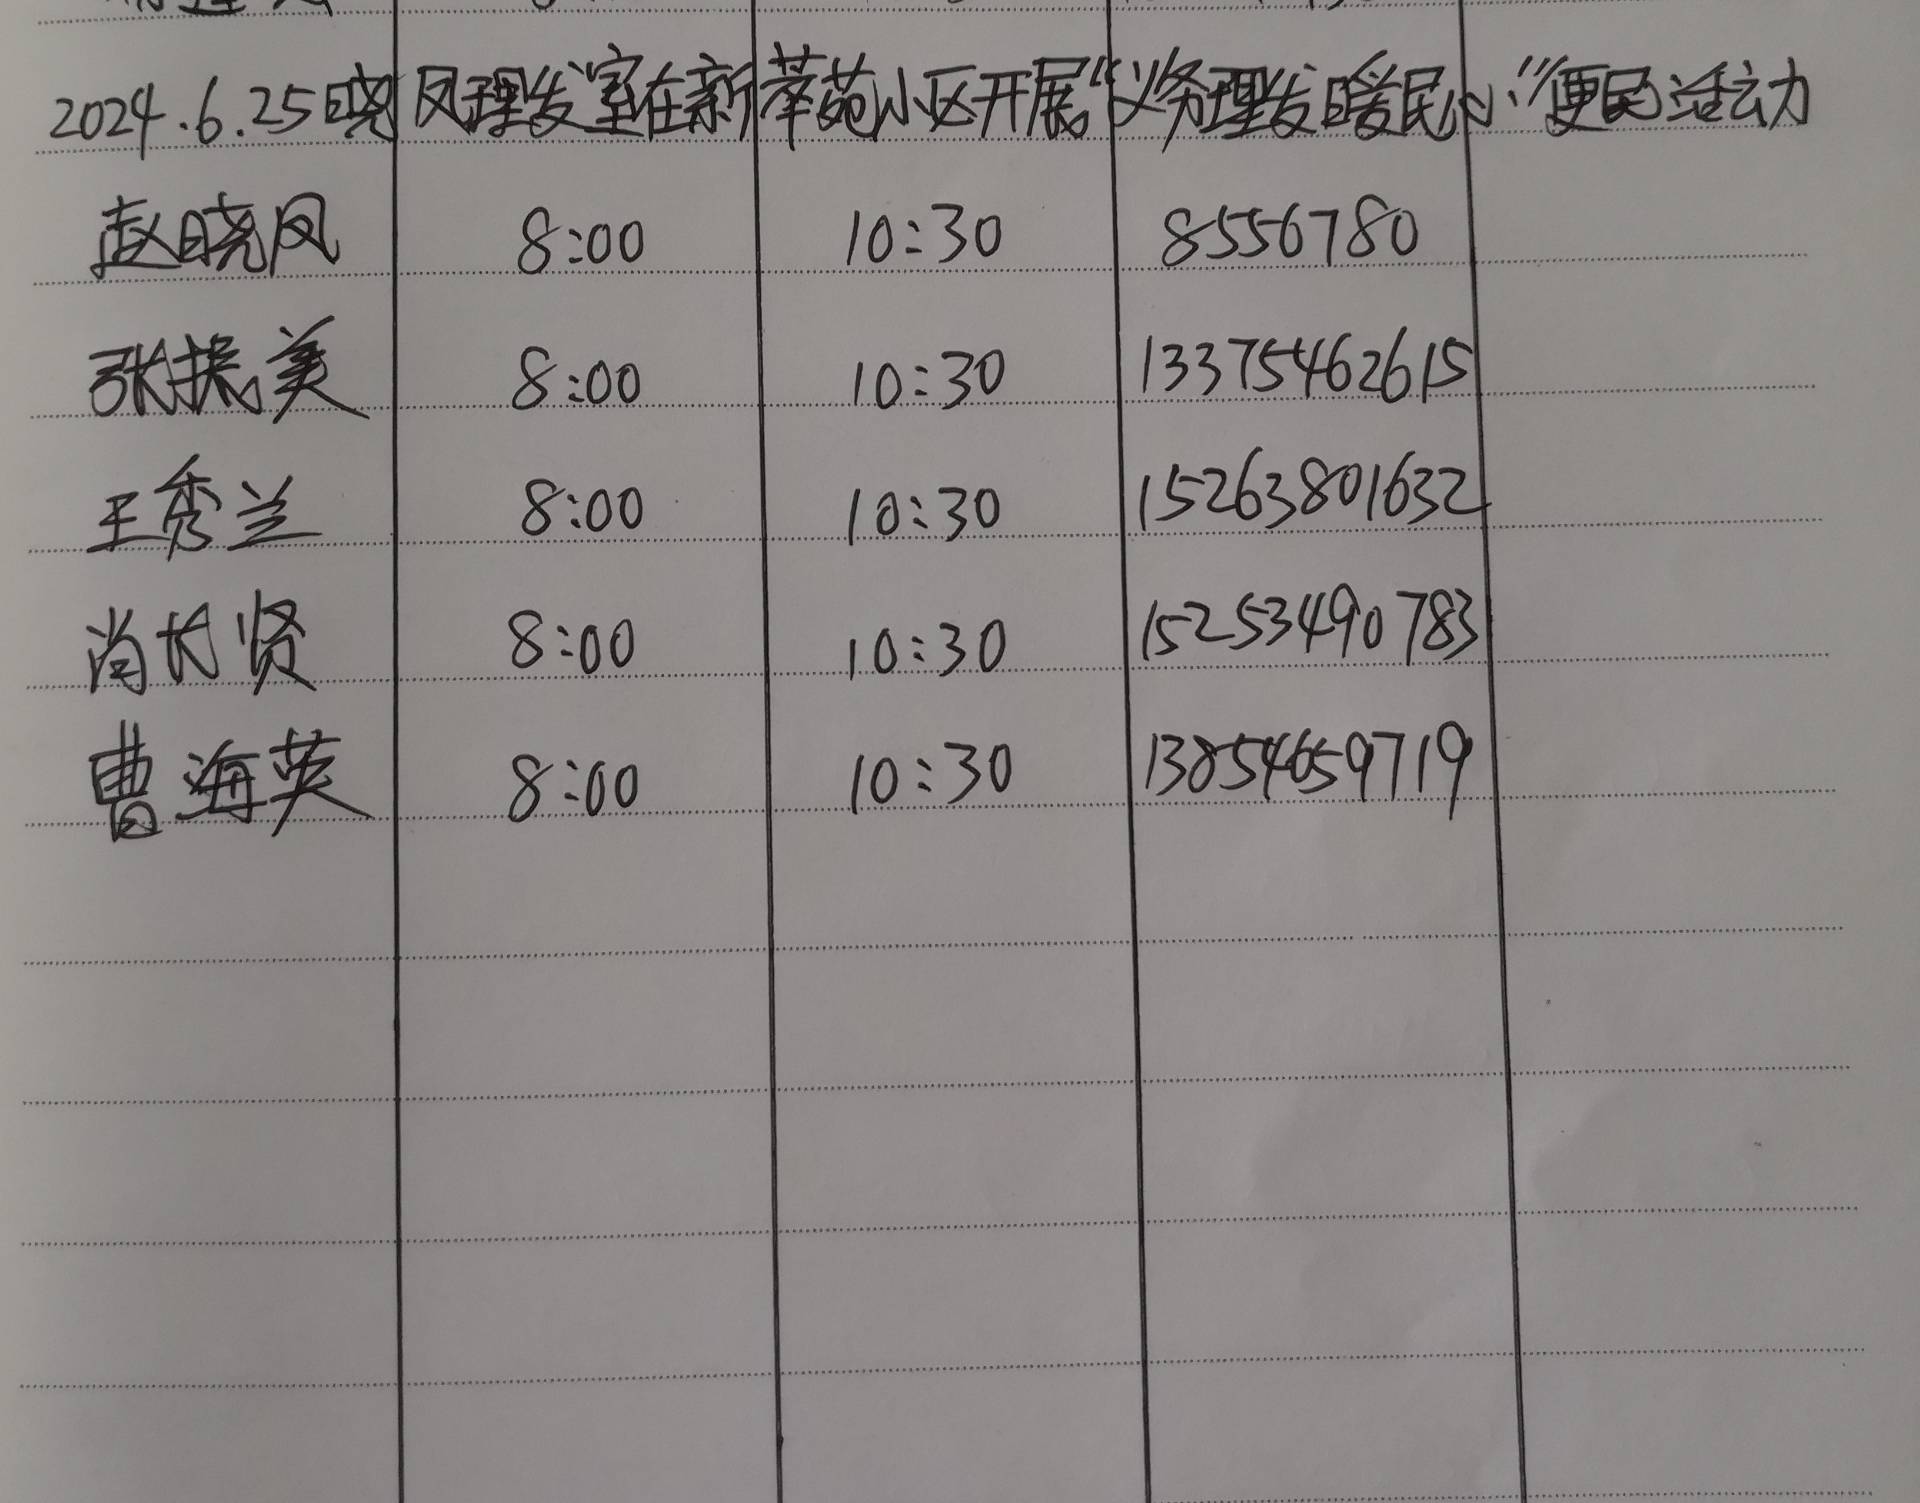 2024.6.25晓凤理发室在新莘苑小区开展“义务理发暖民心”便民活动
赵晓凤 8:00 10:30 8556780
张振美 8:00 10:30 13375462615
王秀兰 8:00 10:30 15263801632
肖长贤 8:00 10:30 15253490783
曹海英 8:00 10:30 13854659719